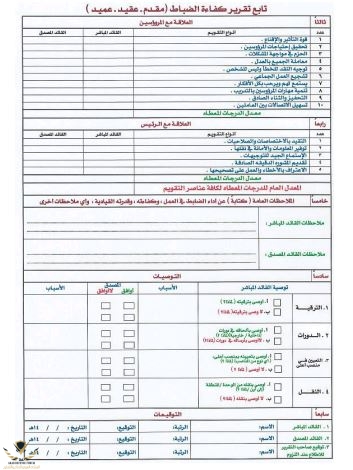 تابع تقرير كفاءة الضباط (مقدم . عقيد . عميد)
ثالثاً العلاقة مع المرؤوسين
عدد أنواع التقويم القائد المباشر القائد المصدق
١ قوة التأثير والإقناع .
٢ تحقيق إحتياجات المرؤوسين .
٣ الحزم في مواجهة المشكلات .
٤ معاملة الجميع بالعدل .
٥ توجيه النقد للخطأ وليس للشخص .
٦ تشجيع العمل الجماعي .
٧ يستمع لهم ويرحب بكل الأفكار .
٨ تنمية مهارات المرؤوسين بالتدريب .
٩ التحفيز والثناء الصادق .
١٠ تسهيل الاتصالات بين العاملين .
معدل الدرجات المعطاه
رابعاً العلاقة مع الرئيس
عدد أنواع التقويم القائد المباشر القائد المصدق
١ التقيد بالاختصاصات والصلاحيات .
٢ توفير المعلومات والأمانة في نقلها .
٣ الإستماع الجيد للتوجيهات .
٤ تقديم المشورة الدقيقة الصادقة .
٥ الاعتراف بالأخطاء والعمل على تصحيحها .
معدل الدرجات المعطاه
المعدل العام للدرجات المعطاه لكافة عناصر التقويم
خامساً الملاحظات العامة (كتابة) عن أداء الضابط في العمل ، وكفاءته ، وقدرته القيادية ، وأي ملاحظات أخرى
ملاحظات القائد المباشر :
ملاحظات القائد المصدق :
سادساً التوصيات
توصية القائد المباشر الأسباب المصدق الأسباب
توافق لا توافق
١ - الترقية أ. أوصي بترقيته (لماذا؟)
ب. لا أوصي بترقيته (لماذا؟)
٢ - الدورات أ. أوصي بالحاقه في دورات
ب. لا أوصي بالحاقه في دورات (لماذا؟)
٣ - التعيين في منصب أعلى أ. أوصي بتعيينه بمنصب أعلى
ب. لا أوصي (لماذا؟)
٤ - النقل أ. أوصي بنقله من الوحدة / المنطقة
ب. لا أوصي بنقله (لماذا؟)
سابعاً التوقيعات
١ - القائد المباشر : الاسم: الرتبة: التوقيع: التاريخ: / / ١٤هـ
٢ - القائد المصدق : الاسم: الرتبة: التوقيع: التاريخ: / / ١٤هـ
٣ - توقيع صاحب التقرير للاطلاع عند اللزوم الاسم: الرتبة: التوقيع: التاريخ: / / ١٤هـ